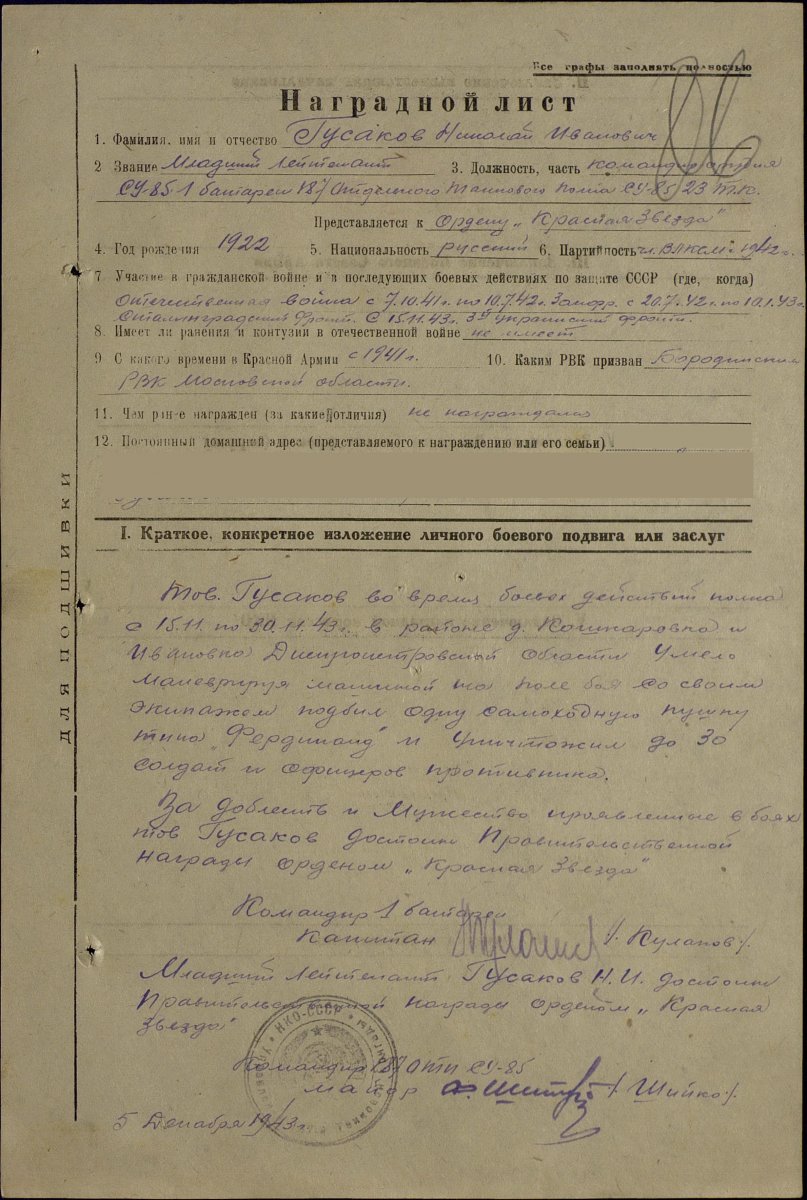 Все графы заполнять полностью
Наградной лист
1. Фамилия, имя и отчество Гусаков Николай Иванович
2 Звание Младший Лейтенант 3. Должность, часть командир орудия
СУ-85 1 батареи 187 Отдельного Танкового полка СУ-85 23 Т.К.
Представляется к Ордену „Красная Звезда"
4. Год рождения 1922 5. Национальность русский 6. Партийность чл. ВЛКСМ с 1942 г.
7 Участие в гражданской войне и в последующих боевых действиях по защите СССР (где, когда)
Отечественная война с 7.10.41 г. по 10.7.42 г. Зап.фр. с 20.7.42 г. по 10.1.43 г.
Сталинградский фронт. С 15.11.43 г. 3й Украинский фронт.
8. Имеет ли ранения и контузии в отечественной войне не имеет
9 С какого времени в Красной Армии с 1941 г. 10. Каким РВК призван Бородинским
РВК Московской области.
11. Чем ранее награжден (за какие отличия) не награждался
12. Постоянный домашний адрес (представляемого к награждению или его семьи)
ДЛЯ ПОДШИВКИ
I. Краткое, конкретное изложение личного боевого подвига или заслуг
Тов. Гусаков во время боевых действий полка
с 15.11. по 30.11.43 г. в районе д. Кошкаровка и
Ивановка Днепропетровской области умело
маневрируя машиной на поле боя со своим
экипажем подбил одну самоходную пушку
типа „Фердинанд" и уничтожил до 30
солдат и офицеров противника.
За доблесть и мужество проявленные в боях
тов Гусаков достоин Правительственной
награды орденом „Красная Звезда"
Командир 1 батареи
Капитан /. Кулаков./.
Младший Лейтенант Гусаков Н.И. достоин
Правительственной награды орденом „Красная
Звезда"
Командир 187 ОТП СУ-85
майор /. Шийко./.
НКО-СССР
5 Декабря 1943 г.